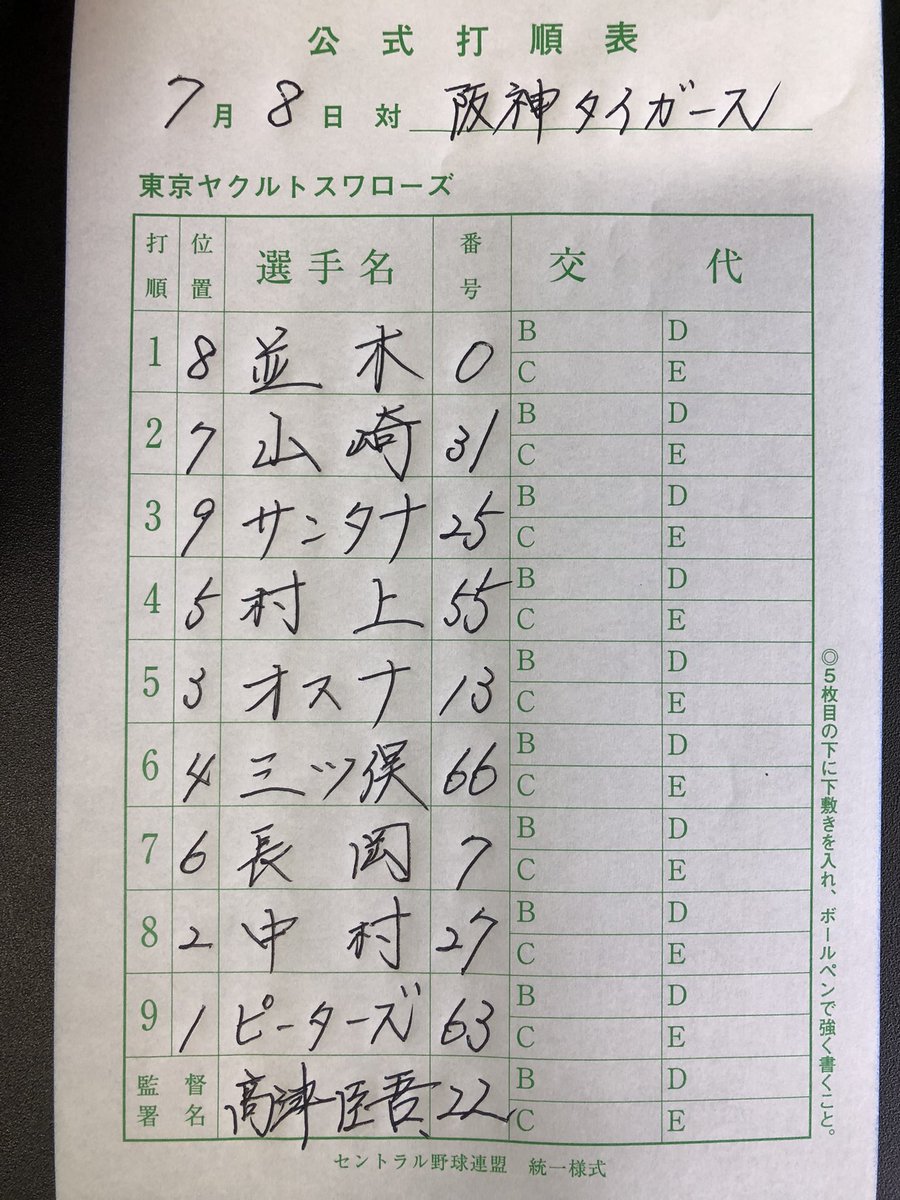 公式打順表
7月8日対 阪神タイガース
東京ヤクルトスワローズ
打順 位置 選手名 番号 交代
1 8 並木 0 B D
C E
2 7 山崎 31 B D
C E
3 9 サンタナ 25 B D
C E
4 5 村上 55 B D
C E
5 3 オスナ 13 B D
C E
6 4 三ツ俣 66 B D
C E
7 6 長岡 7 B D
C E
8 2 中村 27 B D
C E
9 1 ピーターズ 63 B D
C E
監督署名 髙津臣吾 22 B D
C E
◎5枚目の下に下敷きを入れ、ボールペンで強く書くこと。
セントラル野球連盟 統一様式